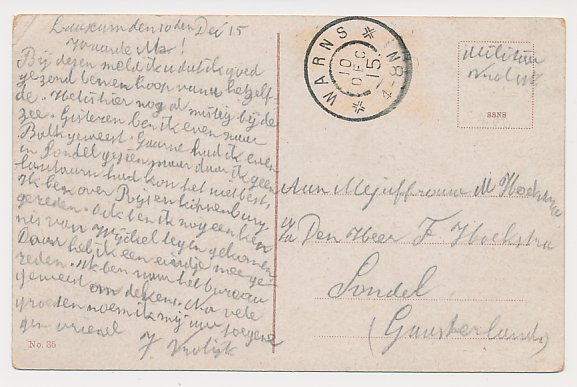 Laaxum den 10den Dec 15
Waarde M !
Bij dezen meld ik u dat ik goed
gezond ben en hoop van u hetzelf-
de. Het is hier nog al mistig bij de
zee. Gisteren ben ik even naar
Balk geweest. Gaarne had ik even
in Sondel gezien maar daar ik geen
lantaarn had kon het niet best.
Ik ben over Rijs en Kippenburg
gereden. Ook ben ik nog een
nis van Wijckel tegen gekomen
Daar heb ik een eindje mee ge-
reden. Ik ben naar het bureau
geweest om dekens. Na vele
groeten noem ik mij uw toegene
gen vriend
J Vrolijk
No. 35
WARNS
10
DEC
15
4-8 N
Militair
Vrolijk
Aan Mejuffrouw M Hoekstra
p/a Den Heer F Hoekstra
Sondel
(Gaasterland)